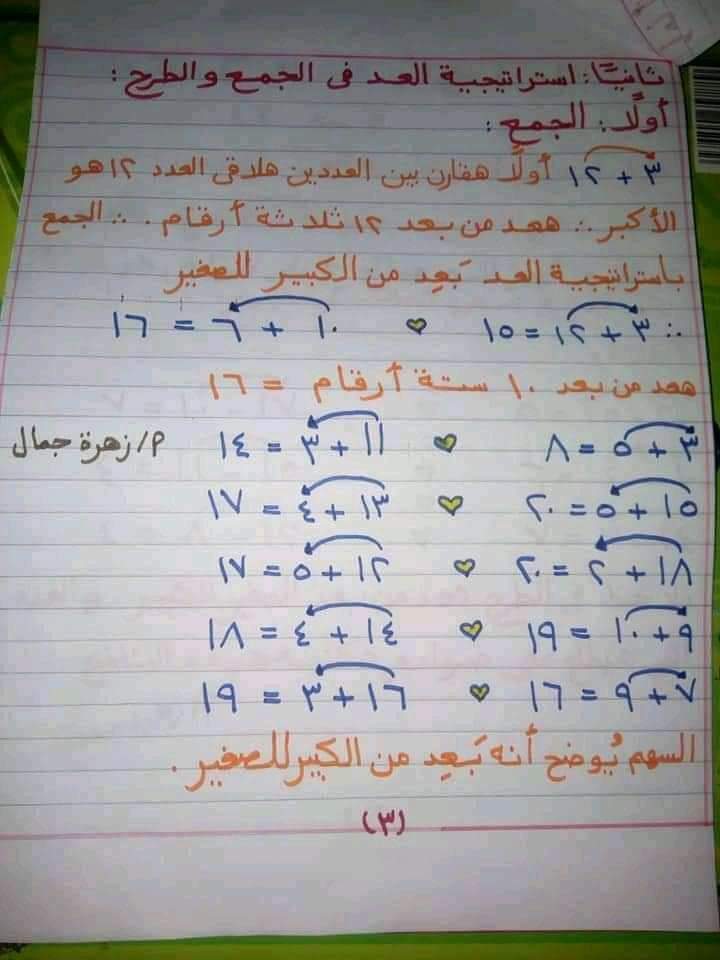 ثانيًا: استراتيجية العد فى الجمع والطرح:
أولًا: الجمع:
٣ + ١٢ أولًا هقارن بين العددين هلاقى العدد ١٢ هو
الأكبر ∴ هعد من بعد ١٢ ثلاثة أرقام. ∴ الجمع
بأستراتيجية العد بَعِد من الكبير للصغير
∴ ٣ + ١٢ = ١٥ ١٠ + ٦ = ١٦
هعد من بعد ١٠ ستة أرقام = ١٦
٣ + ٥ = ٨ ١١ + ٣ = ١٤ م/ زهرة جمال
١٥ + ٥ = ٢٠ ١٣ + ٤ = ١٧
١٨ + ٢ = ٢٠ ١٢ + ٥ = ١٧
٩ + ١٠ = ١٩ ١٤ + ٤ = ١٨
٧ + ٩ = ١٦ ١٦ + ٣ = ١٩
السهم يُوضح أنه بَعِد من الكبير للصغير.
(٣)